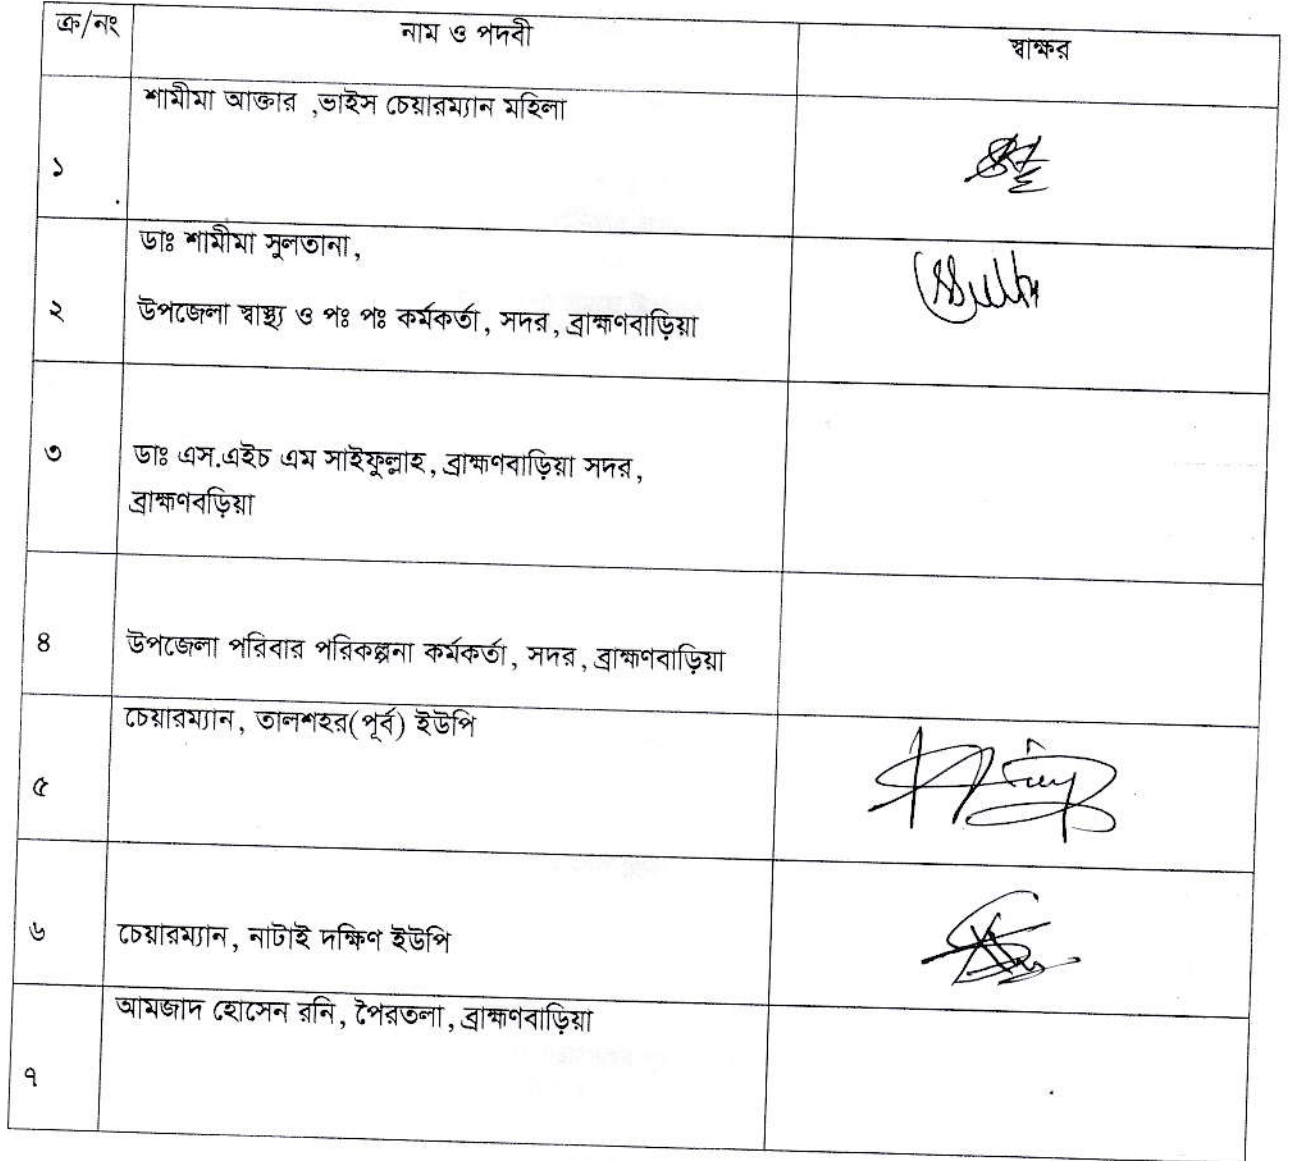 ক্র/নং নাম ও পদবী স্বাক্ষর
শামীমা আক্তার ,ভাইস চেয়ারম্যান মহিলা
১
ডাঃ শামীমা সুলতানা,
২ উপজেলা স্বাস্থ্য ও পঃ পঃ কর্মকর্তা, সদর, ব্রাহ্মণবাড়িয়া
৩ ডাঃ এস.এইচ এম সাইফুল্লাহ, ব্রাহ্মণবাড়িয়া সদর,
ব্রাহ্মণবড়িয়া
৪ উপজেলা পরিবার পরিকল্পনা কর্মকর্তা, সদর, ব্রাহ্মণবাড়িয়া
চেয়ারম্যান, তালশহর(পূর্ব) ইউপি
৫
৬ চেয়ারম্যান, নাটাই দক্ষিণ ইউপি
আমজাদ হোসেন রনি, পৈরতলা, ব্রাহ্মণবাড়িয়া
৭